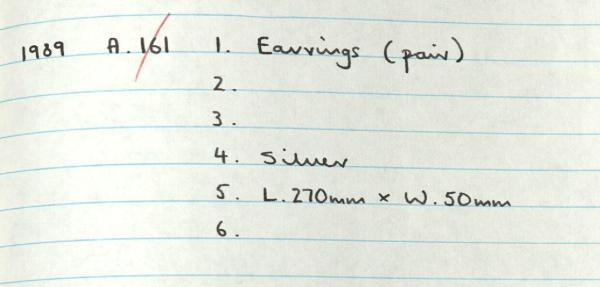 1989 A.161 1. Earrings (pair)
2.
3.
4. Silver
5. L.270mm x W.50mm
6.